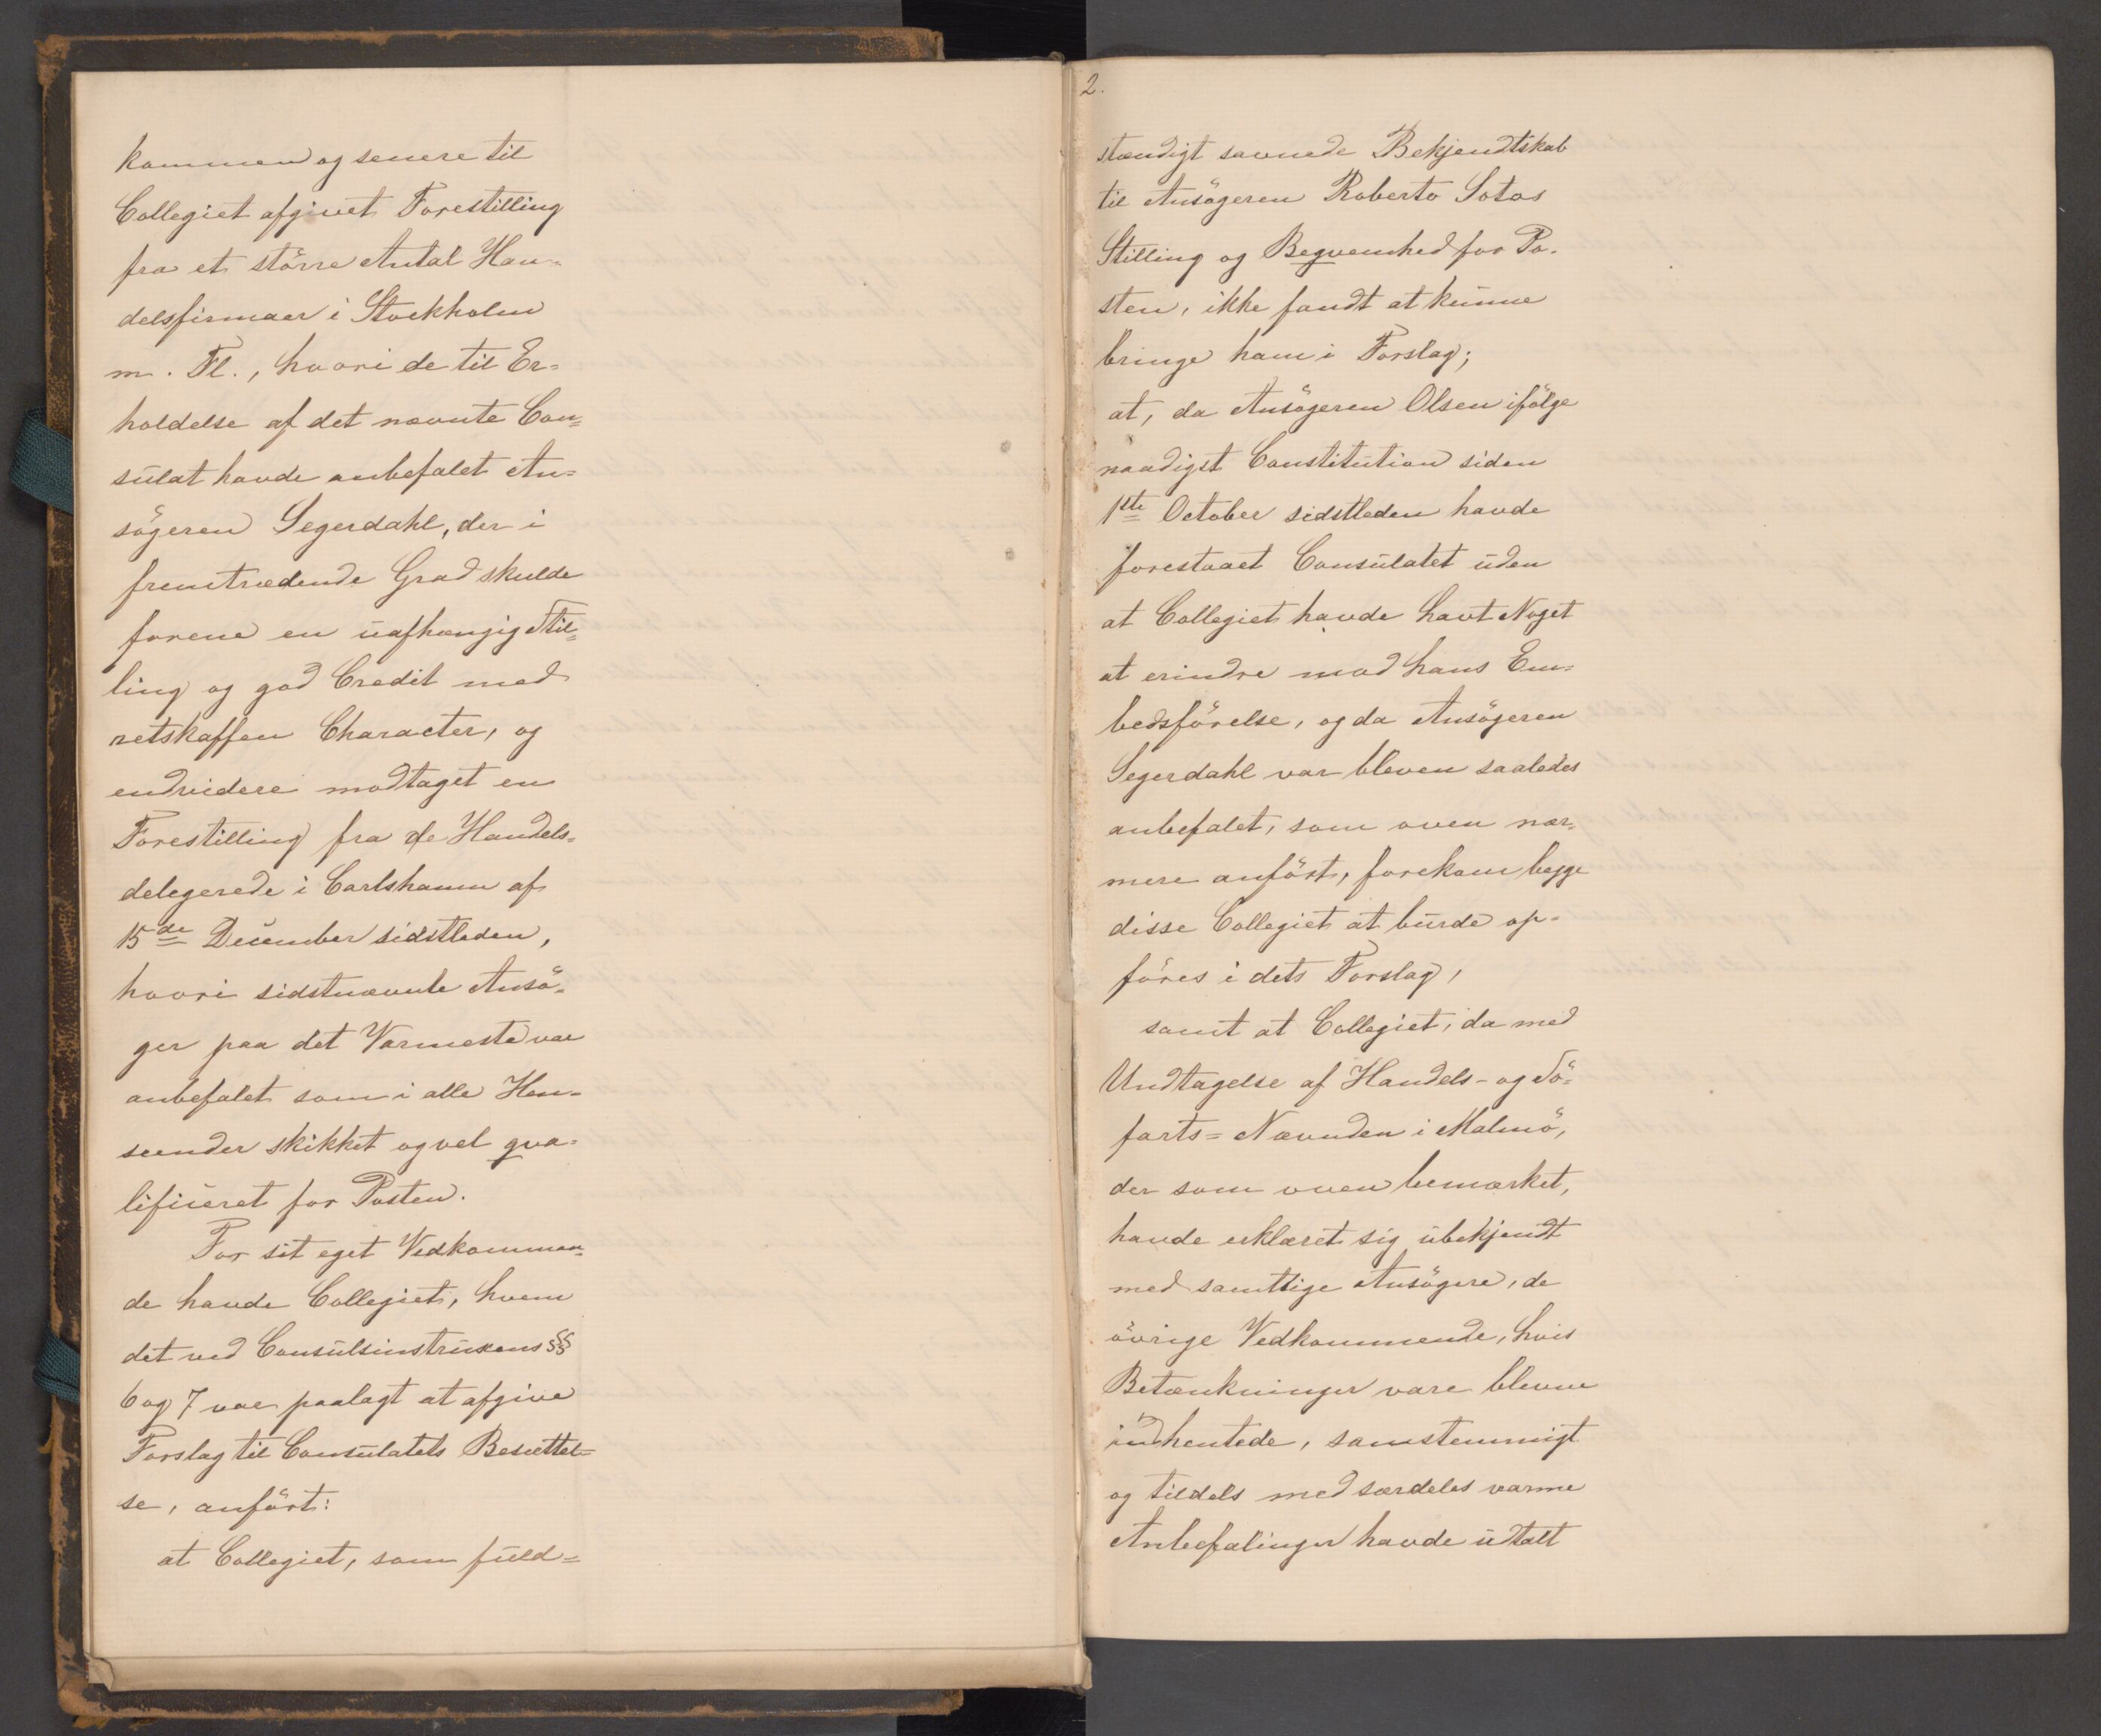 kommen og senere til
Collegiet afgivet Forestilling
fra et större Antal Han-
delsfirmaer i Stockholm
m. Fl., hvori de til Er=
holdelse af det nævnte Con=
sulat havde anbefalet An=
sögeren Segerdahl, der i
fremtrædende Grad skulde
forene en uafhængig Stil=
ling og god Credit med
retskaffen Character, og
endvidere modtaget en
Forestilling fra de Handels=
delegerede i Carlshamn af
15de December sidstleden,
hvori sidstnævnte Ansö=
ger paa det Varmeste var
anbefalet som i alle Hen=
seender skikket og vel qva=
lificeret for Posten.
For sit eget Vedkommen=
de havde Collegiet, hvem
det ved Consulsinstruxens §§
6 og 7 var paalagt at afgive
Forslag til Consulatets Besættel=
se, anfört:
at Collegiet, som fuld=
2.
stændigt savnede Bekjendtskab
til Ansögeren Roberto Sotos
Stilling og Beqvemhed for Po-
sten, ikke fandt at kunne
bringe ham i Forslag;
at, da Ansögeren Olsen ifölge
naadigst Constitution siden
1ste October sidstleden havde
forestaaet Consulatet uden
at Collegiet havde havt Noget
at erindre mod hans Em=
bedsförelse, og da Ansögeren
Segerdahl var bleven saaledes
anbefalet, som oven nær-
mere anfört, forekom begge
disse Collegiet at burde op-
föres i dets Forslag,
samt at Collegiet, da med
Undtagelse af Handels- og Sö=
farts=Nævnden i Malmö,
der som oven bemærket,
havde erklæret sig ubekjendt
med samtlige Ansögere, de
övrige Vedkommende, hvis
Betænkninger vare blevne
indhentede, samstemmigt
og tildels med særdeles varme
Anbefalinger havde udtalt